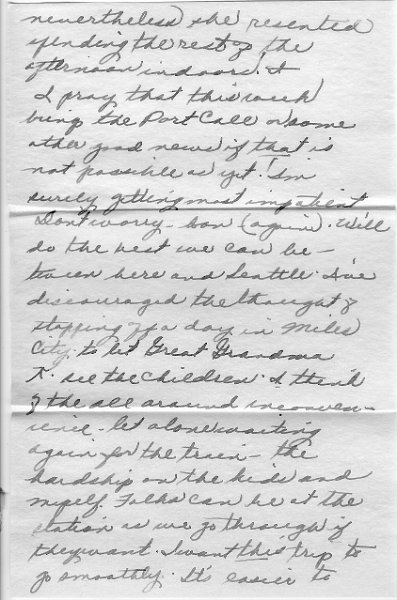 nevertheless she resented
spending the rest of the
afternoon indoors.
I pray that this week
bring the Port Call or some
other good news if that is
not possible as yet! I'm
surely getting most impatient
Don't worry - hon (again). We'll
do the best we can be-
tween here and Seattle. I've
discouraged the thought of
stopping off a day in Miles
City to let Great Grandma
K. see the children. I think
of the all around inconven-
ience - let alone waiting
again for the train - the
hardship on the kids and
myself. Folks can be at the
station as we go through if
they want. I want this trip to
go smoothly. It's easier to